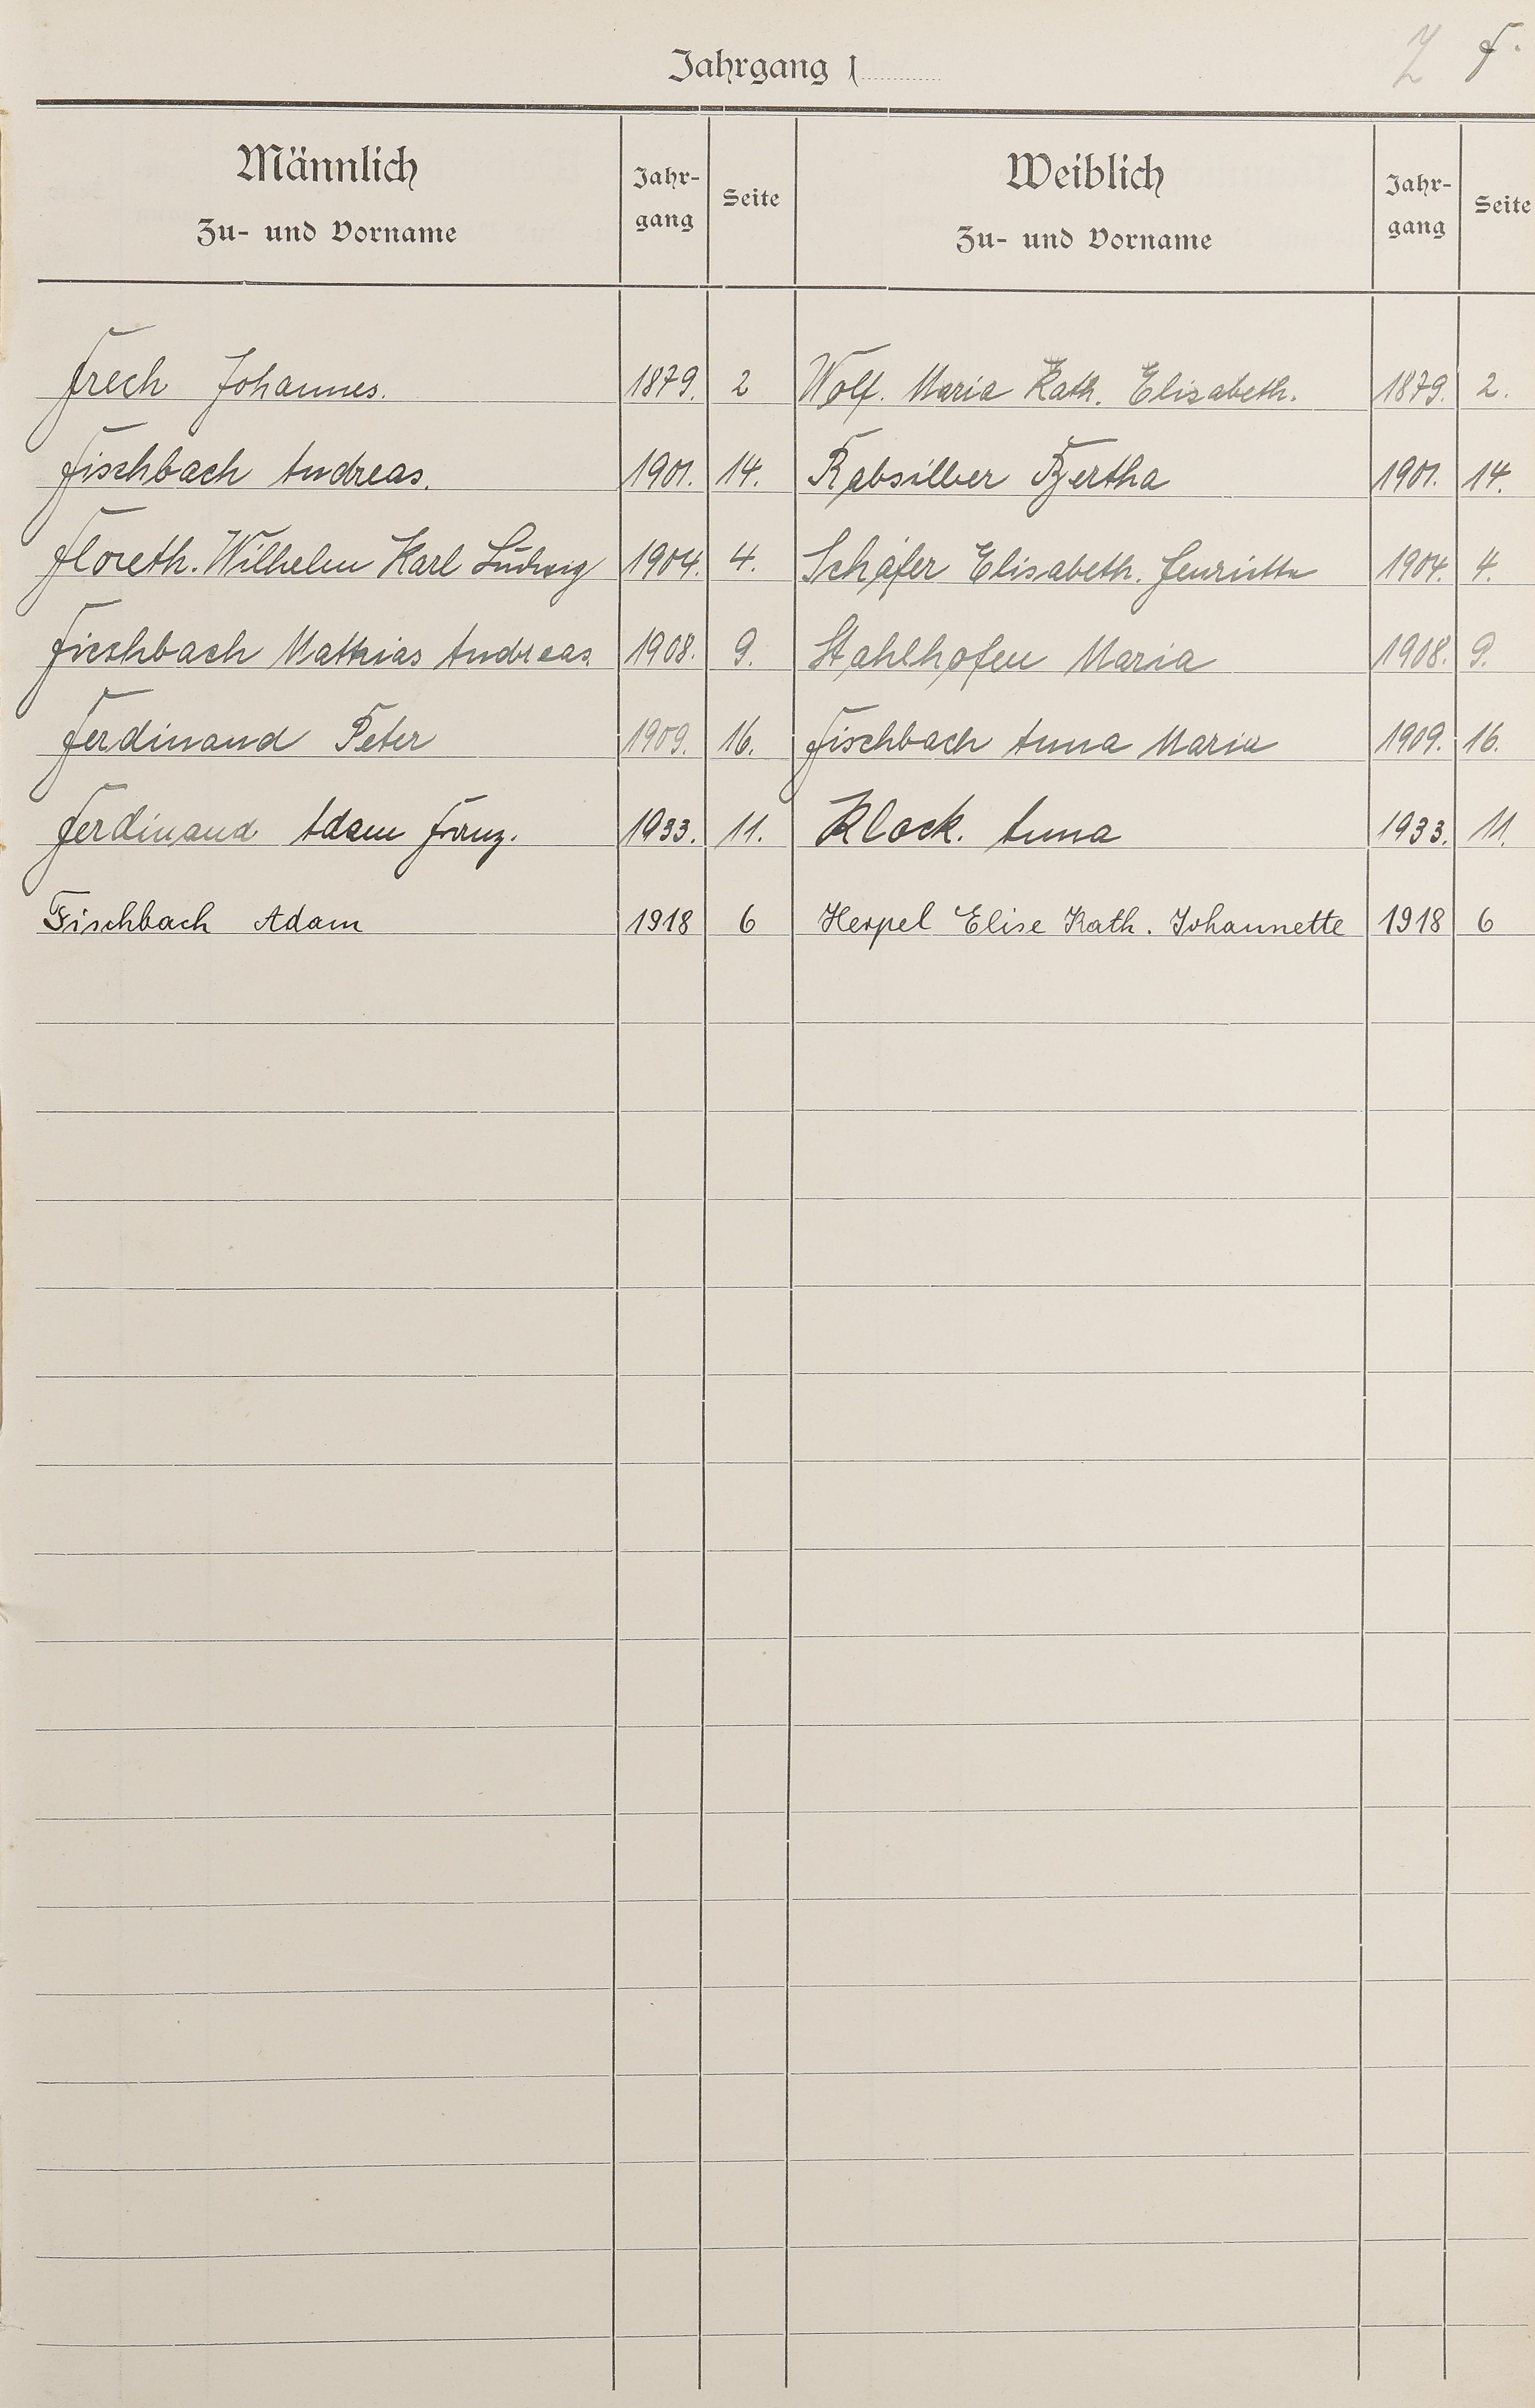 7 F.
Jahrgang 1
Männlich
Zu- und Vorname
Jahr-
gang
Seite
Weiblich
Zu- und Vorname
Jahr-
gang
Seite
Frech Johannes. 1879. 2 Wolf. Maria Kath. Elisabeth. 1879. 2.
Fischbach Andreas. 1901. 14. Rabsilber Bertha 1901. 14.
Floreth. Wilhelm Karl Ludwig 1904. 4. Schäfer Elisabeth. Henriette 1904. 4.
Fischbach Mathias Andreas 1908. 9. Stahlhofen Maria 1908. 9.
Ferdinand Peter 1909. 16. Fischbach Anna Maria 1909. 16.
Ferdinand Adam Franz. 1933. 11. Klock. Anna 1933. 11.
Fischbach Adam 1918 6 Herpel Elise Kath. Johannette 1918 6